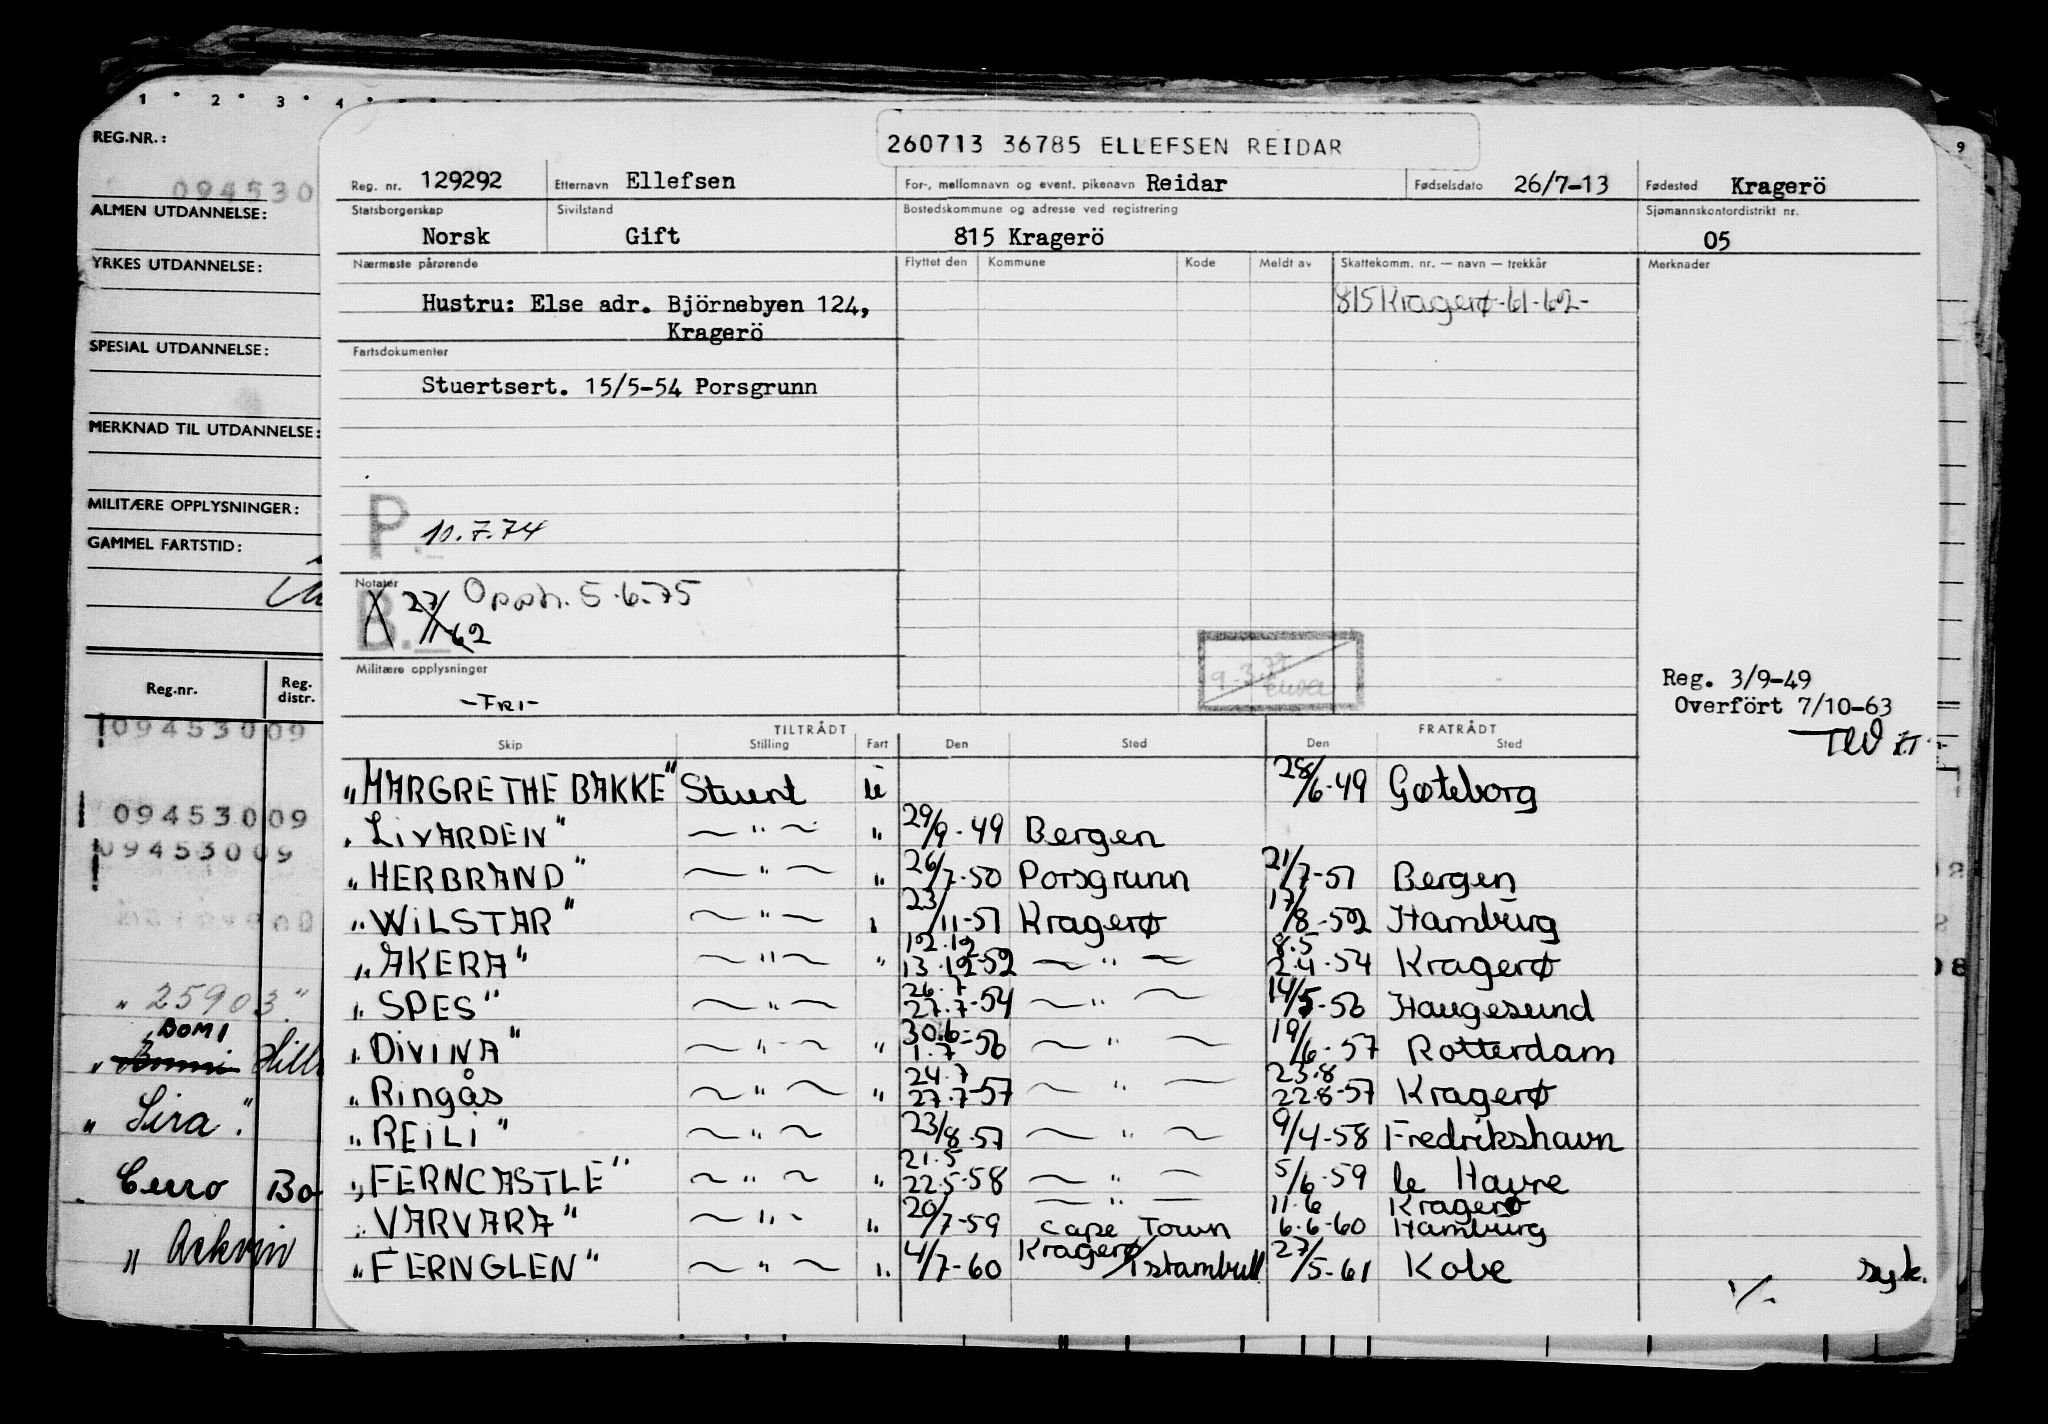 1 2 3 4
9
REG.NR.:
094530
ALMEN UTDANNELSE:
YRKES UTDANNELSE:
SPESIAL UTDANNELSE:
MERKNAD TIL UTDANNELSE:
MILITÆRE OPPLYSNINGER:
GAMMEL FARTSTID:
Reg.nr. Reg. distr.
09453009
09453009
09453009
" 25903."
BOMI
" Bommi
" Sira".
Cerro Bo
"
260713 36785 ELLEFSEN REIDAR
Reg. nr. 129292 Etternavn Ellefsen For-, mellomnavn og event. pikenavn Reidar Fødselsdato 26/7-13 Fødested Kragerö
Statsborgerskap Sivilstand Bostedskommune og adresse ved registrering Sjømannskontordistrikt nr.
Norsk Gift 815 Kragerö 05
Nærmeste pårørende Flyttet den Kommune Kode Meldt av Skattekomm. nr. — navn — trekkår Merknader
Hustru: Else adr. Björnebyen 124, 815 Kragerø-61-62-
Kragerö
Fartsdokumenter
Stuertsert. 15/5-54 Porsgrunn
P. 10.7.74
Notater
B. 27/11 62 Oppdr. 5.6.75
Militære opplysninger
-FRI-
9-3.77
Reg. 3/9-49
Overfört 7/10-63
TILTRÅDT FRATRÅDT
Skip Stilling Fart Den Sted Den Sted
"MARGRETHE BAKKE" Stuert u 28/6-49 Gøteborg
"LIVARDEN" —"— " 29/9-49 Bergen
"HERBRAND" —"— " 26/7-50 Porsgrunn 21/7-51 Bergen
"WILSTAR" —"— " 23/11-51 Kragerø 17/8-52 Hamburg
"AKERA" —"— " 12.12 13.12-52 —"— 8.5 2.4-54 Kragerø
"SPES" —"— 26.7 27.7-54 —"— 14/5-56 Haugesund
"DIVINA" —"— " 30.6- 1.7-56 —"— 19/6-57 Rotterdam
"Ringås —"— " 24.7 27.7-57 —"— 23.8 22.8-57 Kragerø
"REILI" —"— 23/8-57 —"— 9/4-58 Fredrikshavn
"FERNCASTLE" —"— " 21.5 22.5-58 —"— 5/6-59 le Havre
"VARVARA" —"— " 20/7-59 —"— Cape Town 11.6 6.6-60 Kragerø Hamburg
"FERNGLEN" —"— " 4/7-60 Kragerø/Istambull 27/5-61 Kobe syk.